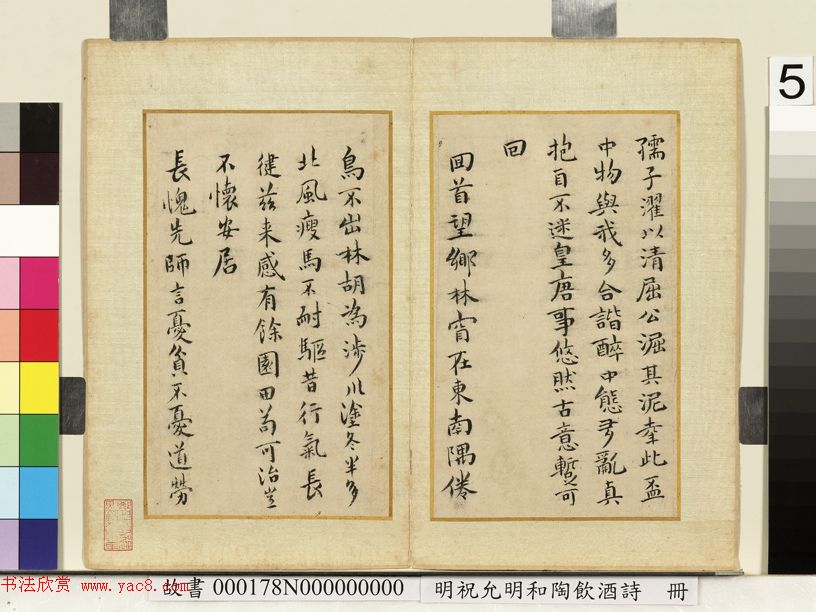 孺子濯以清屈公淈其泥牽此盃
中物與我多合諧醉中態多亂真
抱自不迷皇唐事悠然古意暫可
回
回首望鄉林窅在東南隅倦
鳥不出林胡為涉川塗冬半多
北風瘦馬不耐驅昔行氣長
健茲来感有餘園田苟可治豈
不懷安居
長愧先師言憂貧不憂道勞
5
书法欣赏 www.yac8.com
故書 000178N000000000
明祝允明和陶飲酒詩 冊